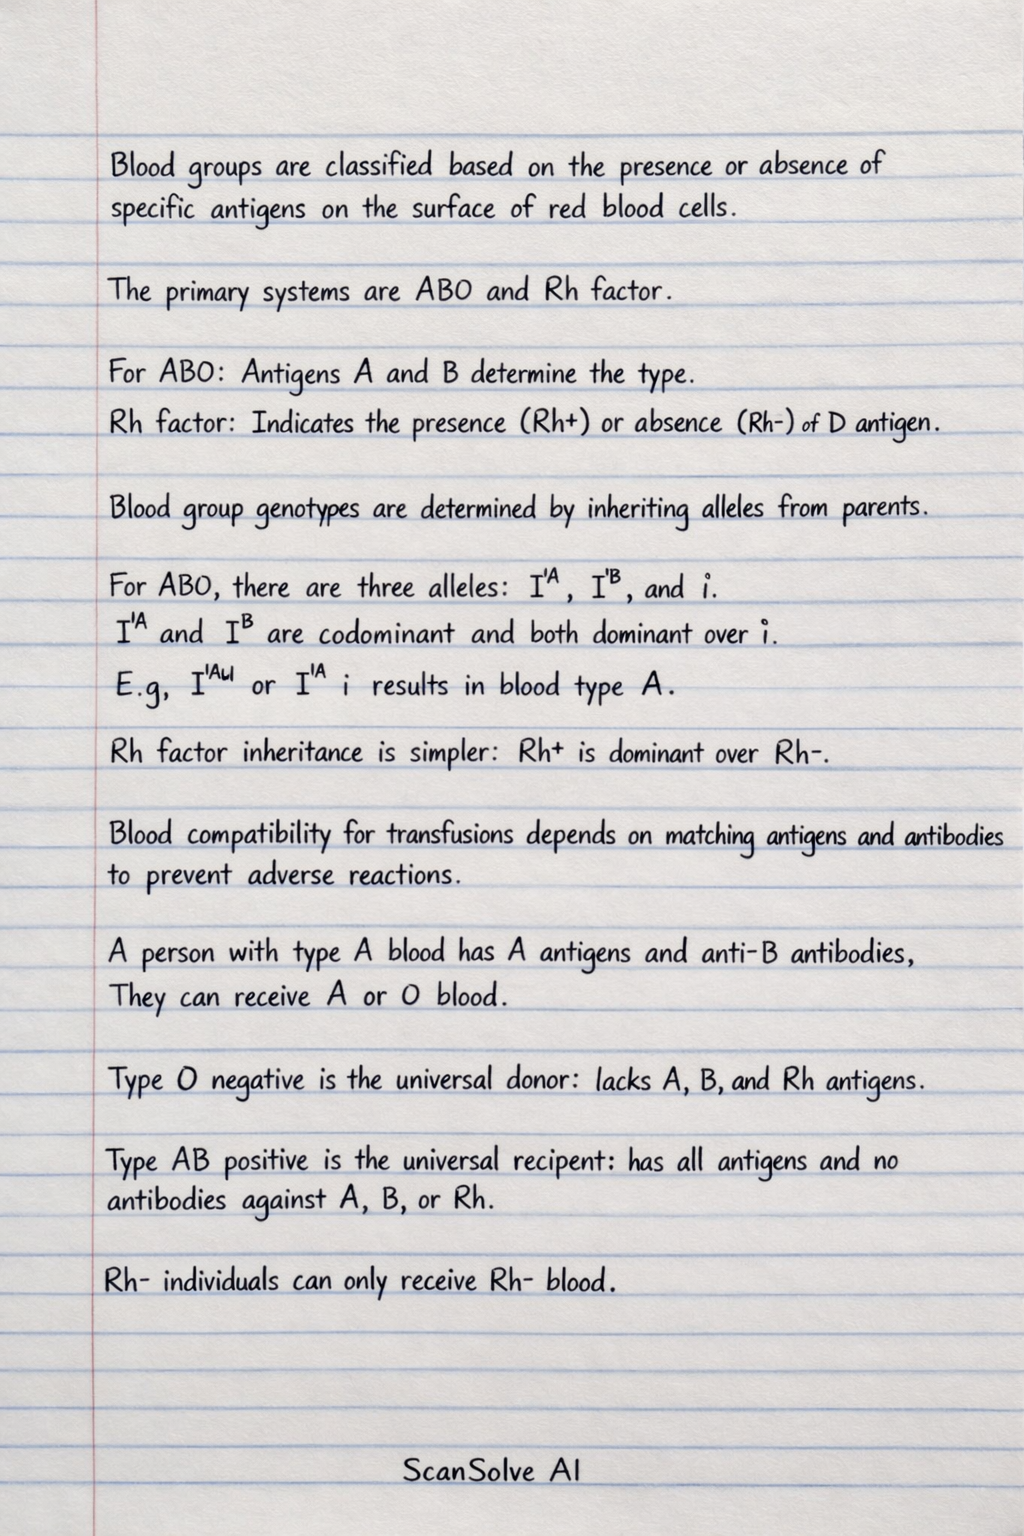 Blood groups are classified based on the presence or absence of
specific antigens on the surface of red blood cells.
The primary systems are ABO and Rh factor.
For ABO: Antigens A and B determine the type.
Rh factor: Indicates the presence (Rh+) or absence (Rh-) of D antigen.
Blood group genotypes are determined by inheriting alleles from parents.
For ABO, there are three alleles: I'ᴬ, I'ᴮ, and i.
I'ᴬ and Iᴮ are codominant and both dominant over i.
E.g, or I'ᴬ i results in blood type A.
Rh factor inheritance is simpler: Rh+ is dominant over Rh-.
Blood compatibility for transfusions depends on matching antigens and antibodies
to prevent adverse reactions.
A person with type A blood has A antigens and anti-B antibodies,
They can receive A or O blood.
Type O negative is the universal donor: lacks A, B, and Rh antigens.
Type AB positive is the universal recipent: has all antigens and no
antibodies against A, B, or Rh.
Rh- individuals can only receive Rh- blood.
ScanSolve AI